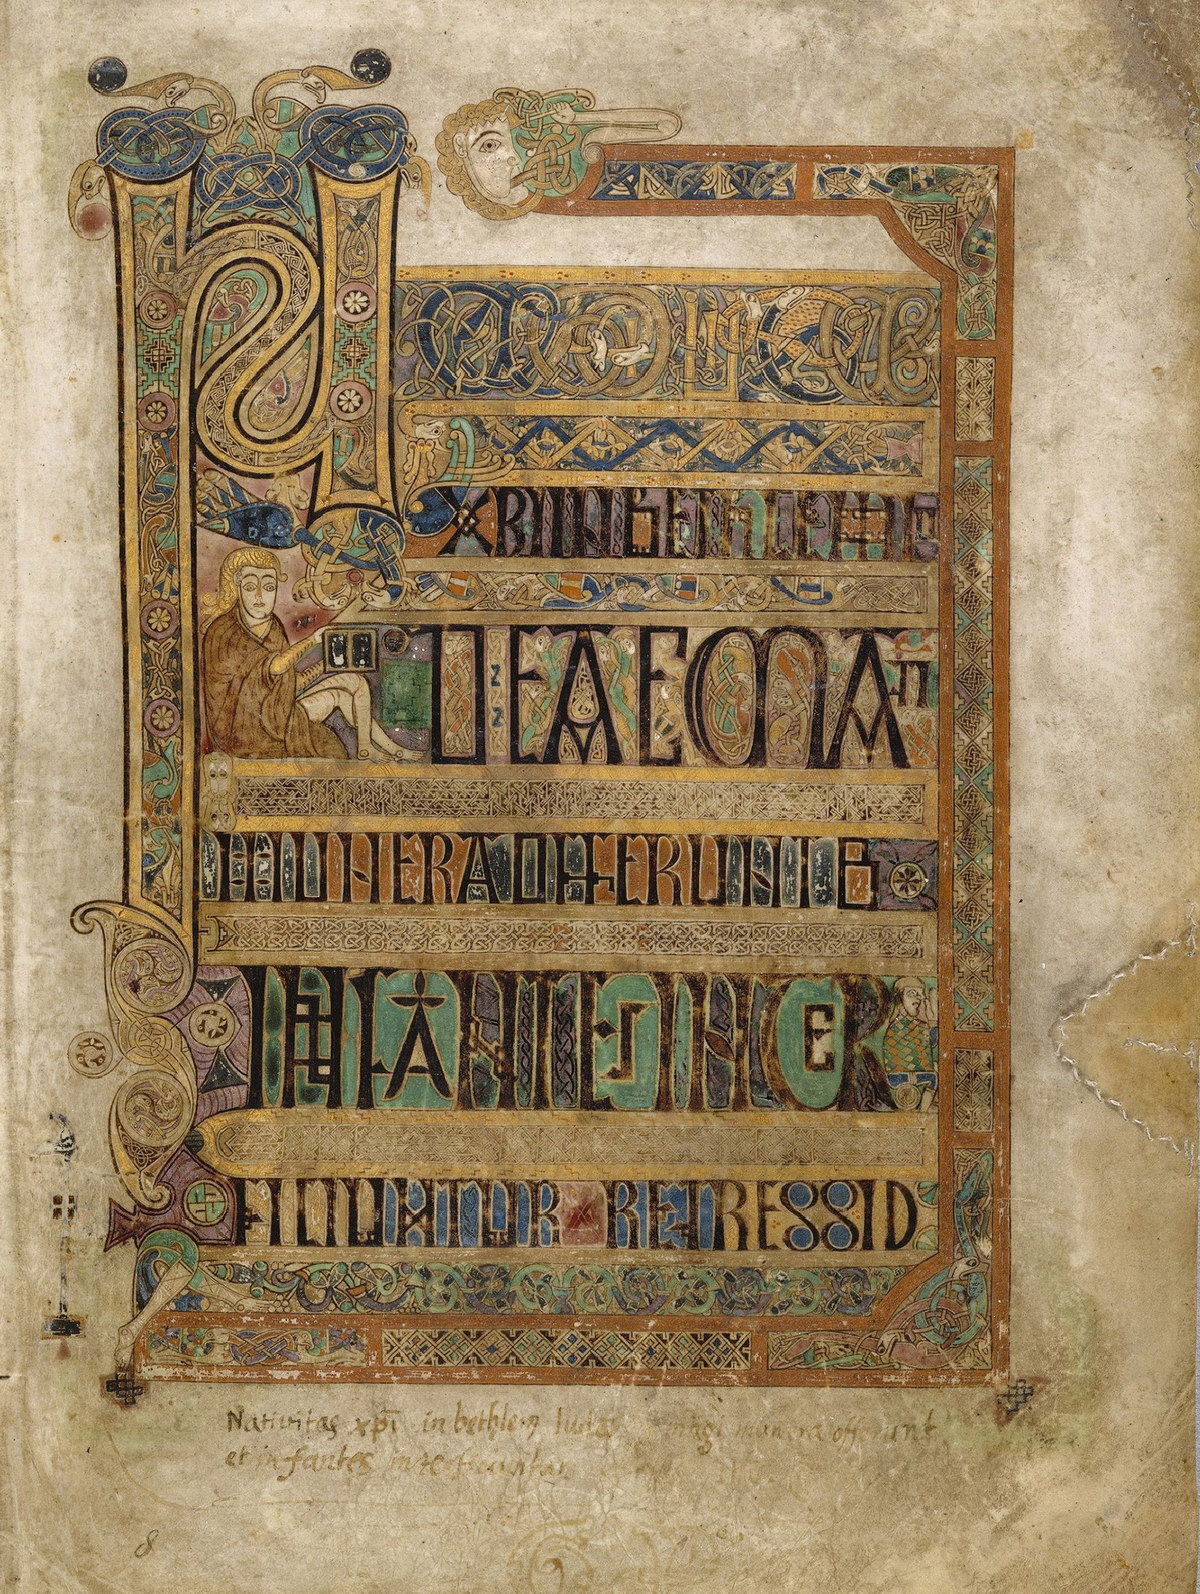 NATIVITAS
XPI IN BETHLEM
IUDEAE MAGI
MUNERA OFFERUNT ET
INFANTES INTER
FICIUNTUR REGRESSIO
Nativitas xp̄i in bethlem Iudeę magi munera offerunt
et infantes interficiuntur
8